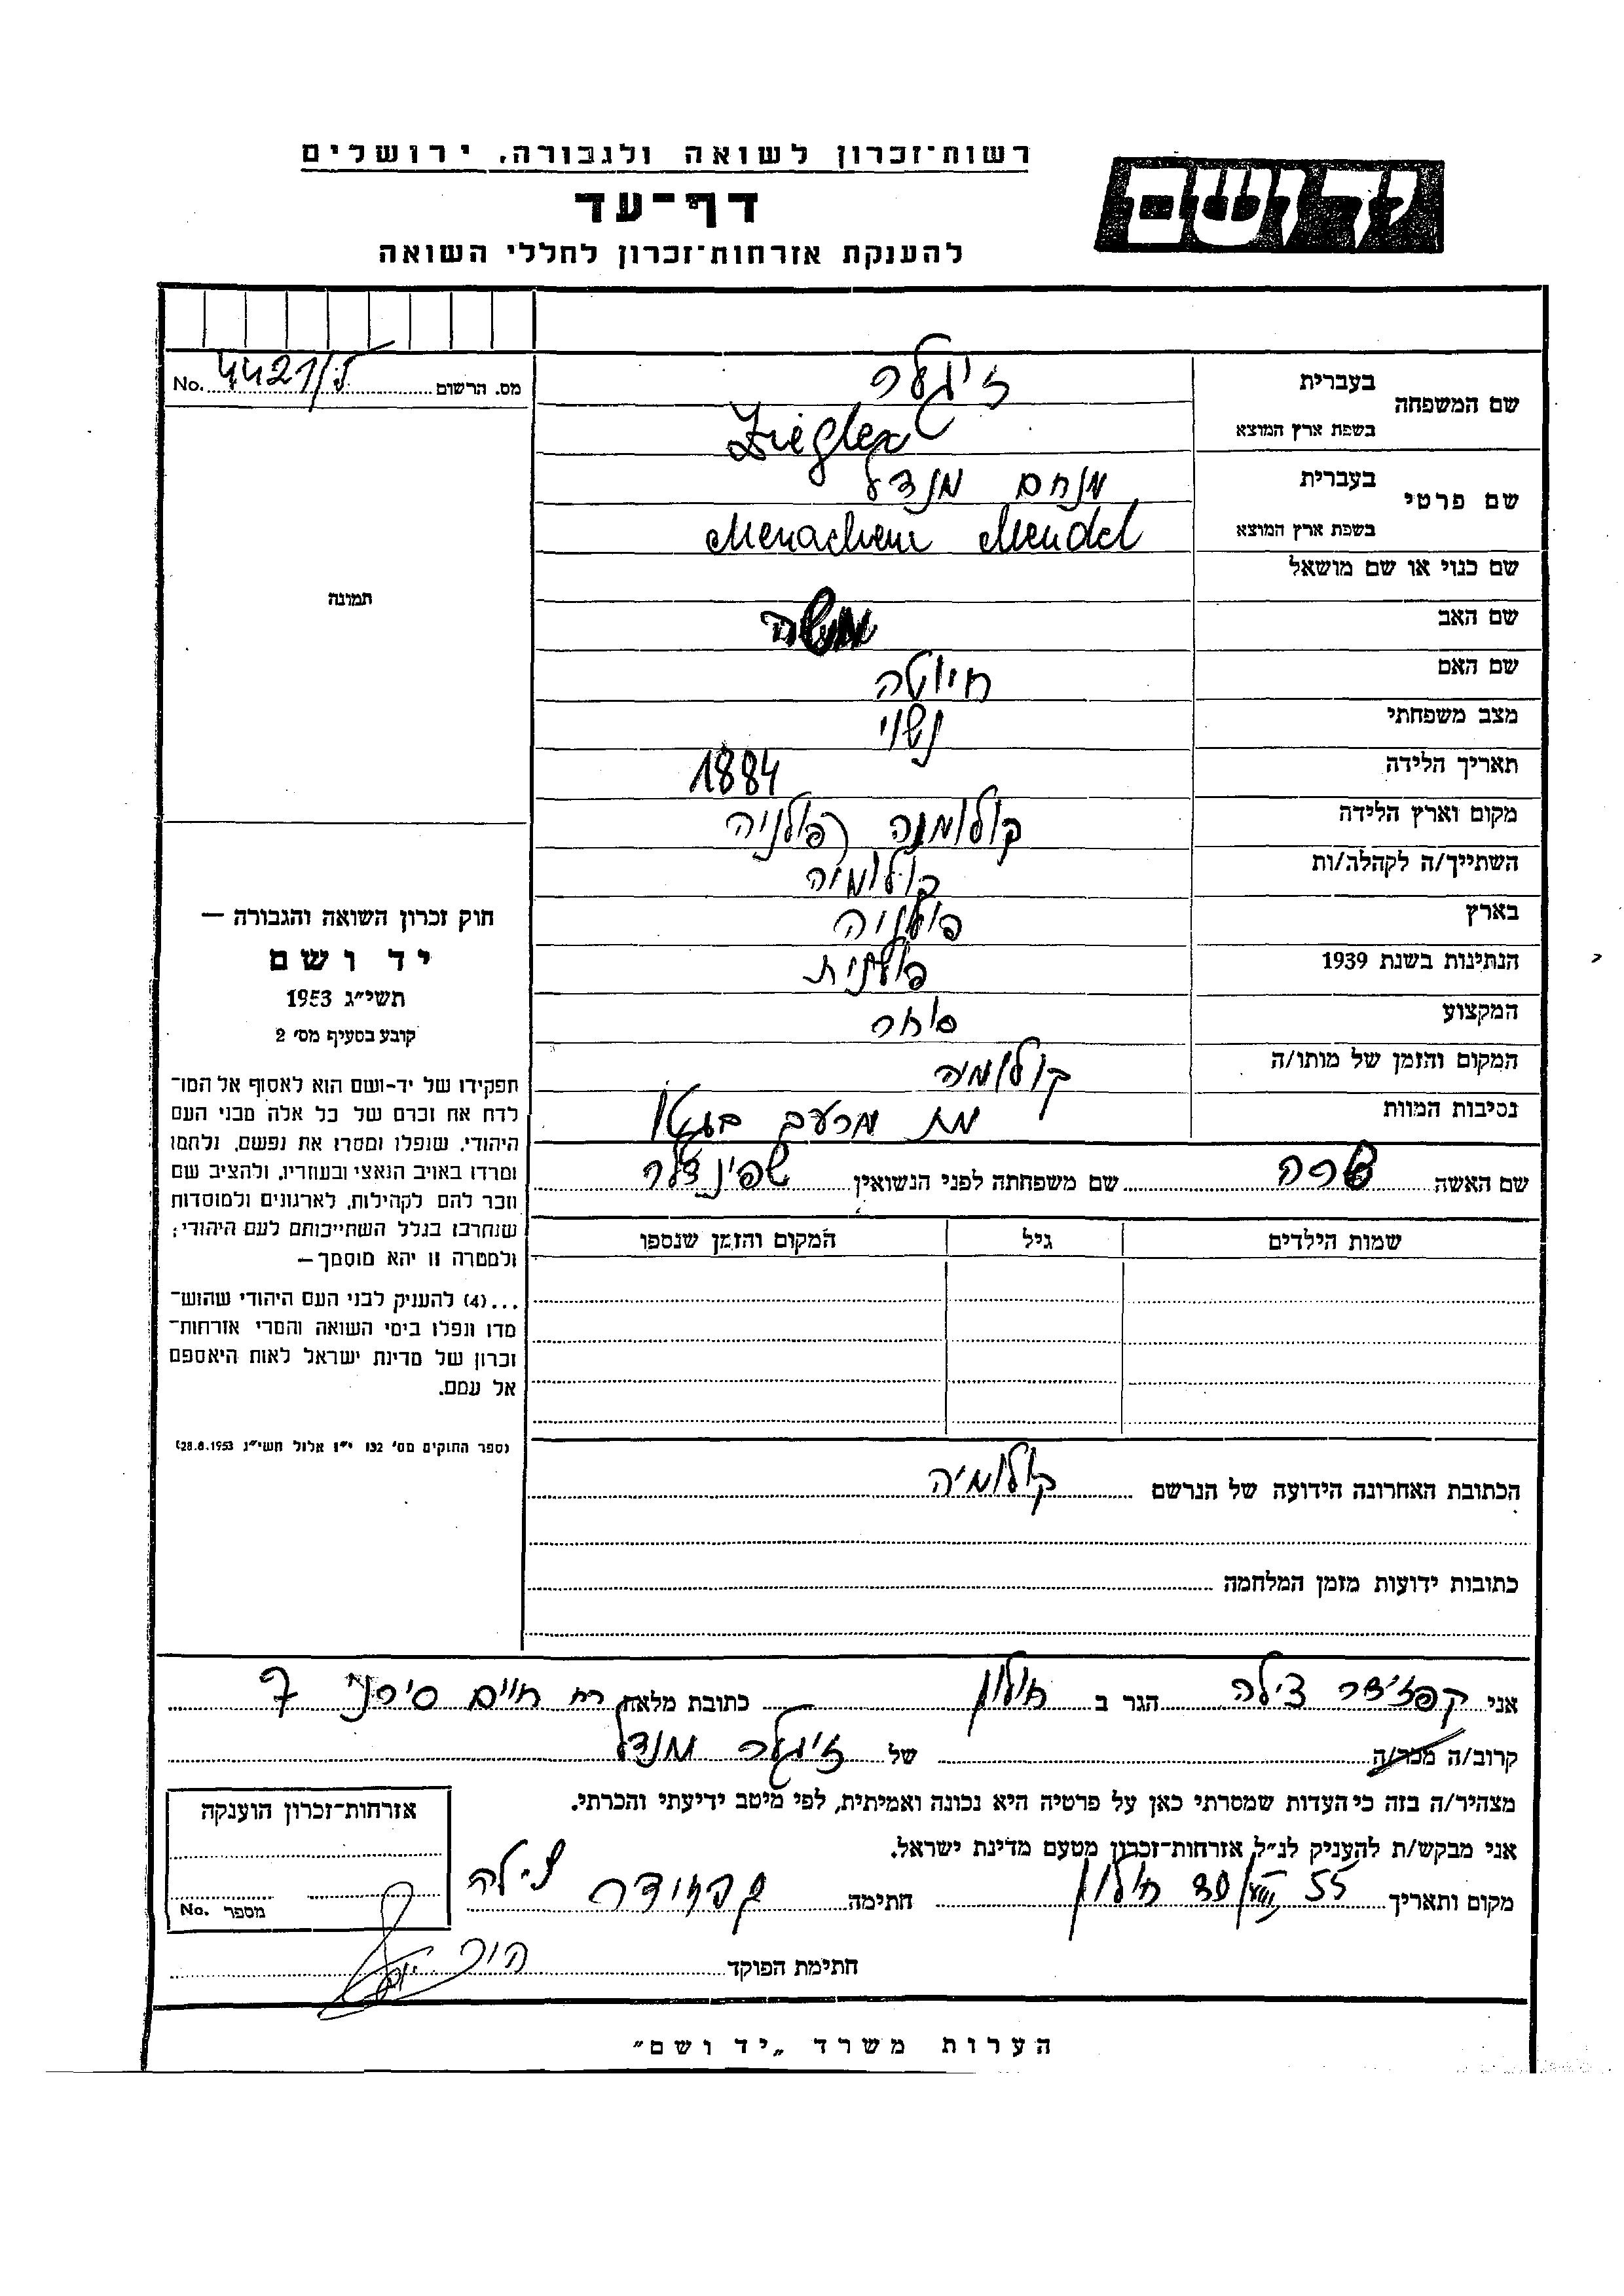 רשות־זכרון לשואה ולגבורה, ירושלים
יד ושם
דף־עד
להענקת אזרחות־זכרון לחללי השואה
מס. הרשום 4421/ No.
שם המשפחה בעברית זיגלר
בשפת ארץ המוצא Ziegler
שם פרטי בעברית מנחם מנדל
בשפת ארץ המוצא Menachem Mendel
שם כנוי או שם מושאל
שם האב משה
שם האם חיוטה
מצב משפחתי נשוי
תאריך הלידה 1884
מקום וארץ הלידה קולומיה פולניה
השתייך/ה לקהלה/ות קולומיה
בארץ פולניה
הנתינות בשנת 1939 פולנית
המקצוע סוחר
המקום והזמן של מותו/ה קולומיה
נסיבות המוות מת מרעב בגטו
תמונה
חוק זכרון השואה והגבורה —
יד ושם
תשי״ג 1953
קובע בסעיף מס׳ 2
תפקידו של יד-ושם הוא לאסוף אל המו־
לדת את זכרם של כל אלה מבני העם
היהודי, שנפלו ומסרו את נפשם, נלחמו
ומרדו באויב הנאצי ובעוזריו, ולהציב שם
וזכר להם לקהילות, לארגונים ולמוסדות
שנחרבו בגלל השתייכותם לעם היהודי;
ולמטרה זו יהא מוסמך —
...(4) להעניק לבני העם היהודי שהוש־
מדו ונפלו בימי השואה והמרי אזרחות־
זכרון של מדינת ישראל לאות היאספם
אל עמם.
(ספר החוקים מס׳ 132 י״ז אלול תשי״ג 28.8.1953)
שם האשה שרה שם משפחתה לפני הנשואין שפינדלר
שמות הילדים גיל המקום והזמן שנספו
הכתובת האחרונה הידועה של הנרשם קולומיה
כתובות ידועות מזמן המלחמה
אני קפזידר צילה הגר ב חולון כתובת מלאה רח חיים סירני 7
קרוב/ה מכר/ה של זיגלר מנדל
מצהיר/ה בזה כי העדות שמסרתי כאן על פרטיה היא נכונה ואמיתית, לפי מיטב ידיעתי והכרתי.
אני מבקש/ת להעניק לנ״ל אזרחות־זכרון מטעם מדינת ישראל.
מקום ותאריך חולון 30/VIII 55 חתימה קפזידר צילה
חתימת הפוקד
אזרחות־זכרון הוענקה
מספר No.
הערות משרד „יד ושם"